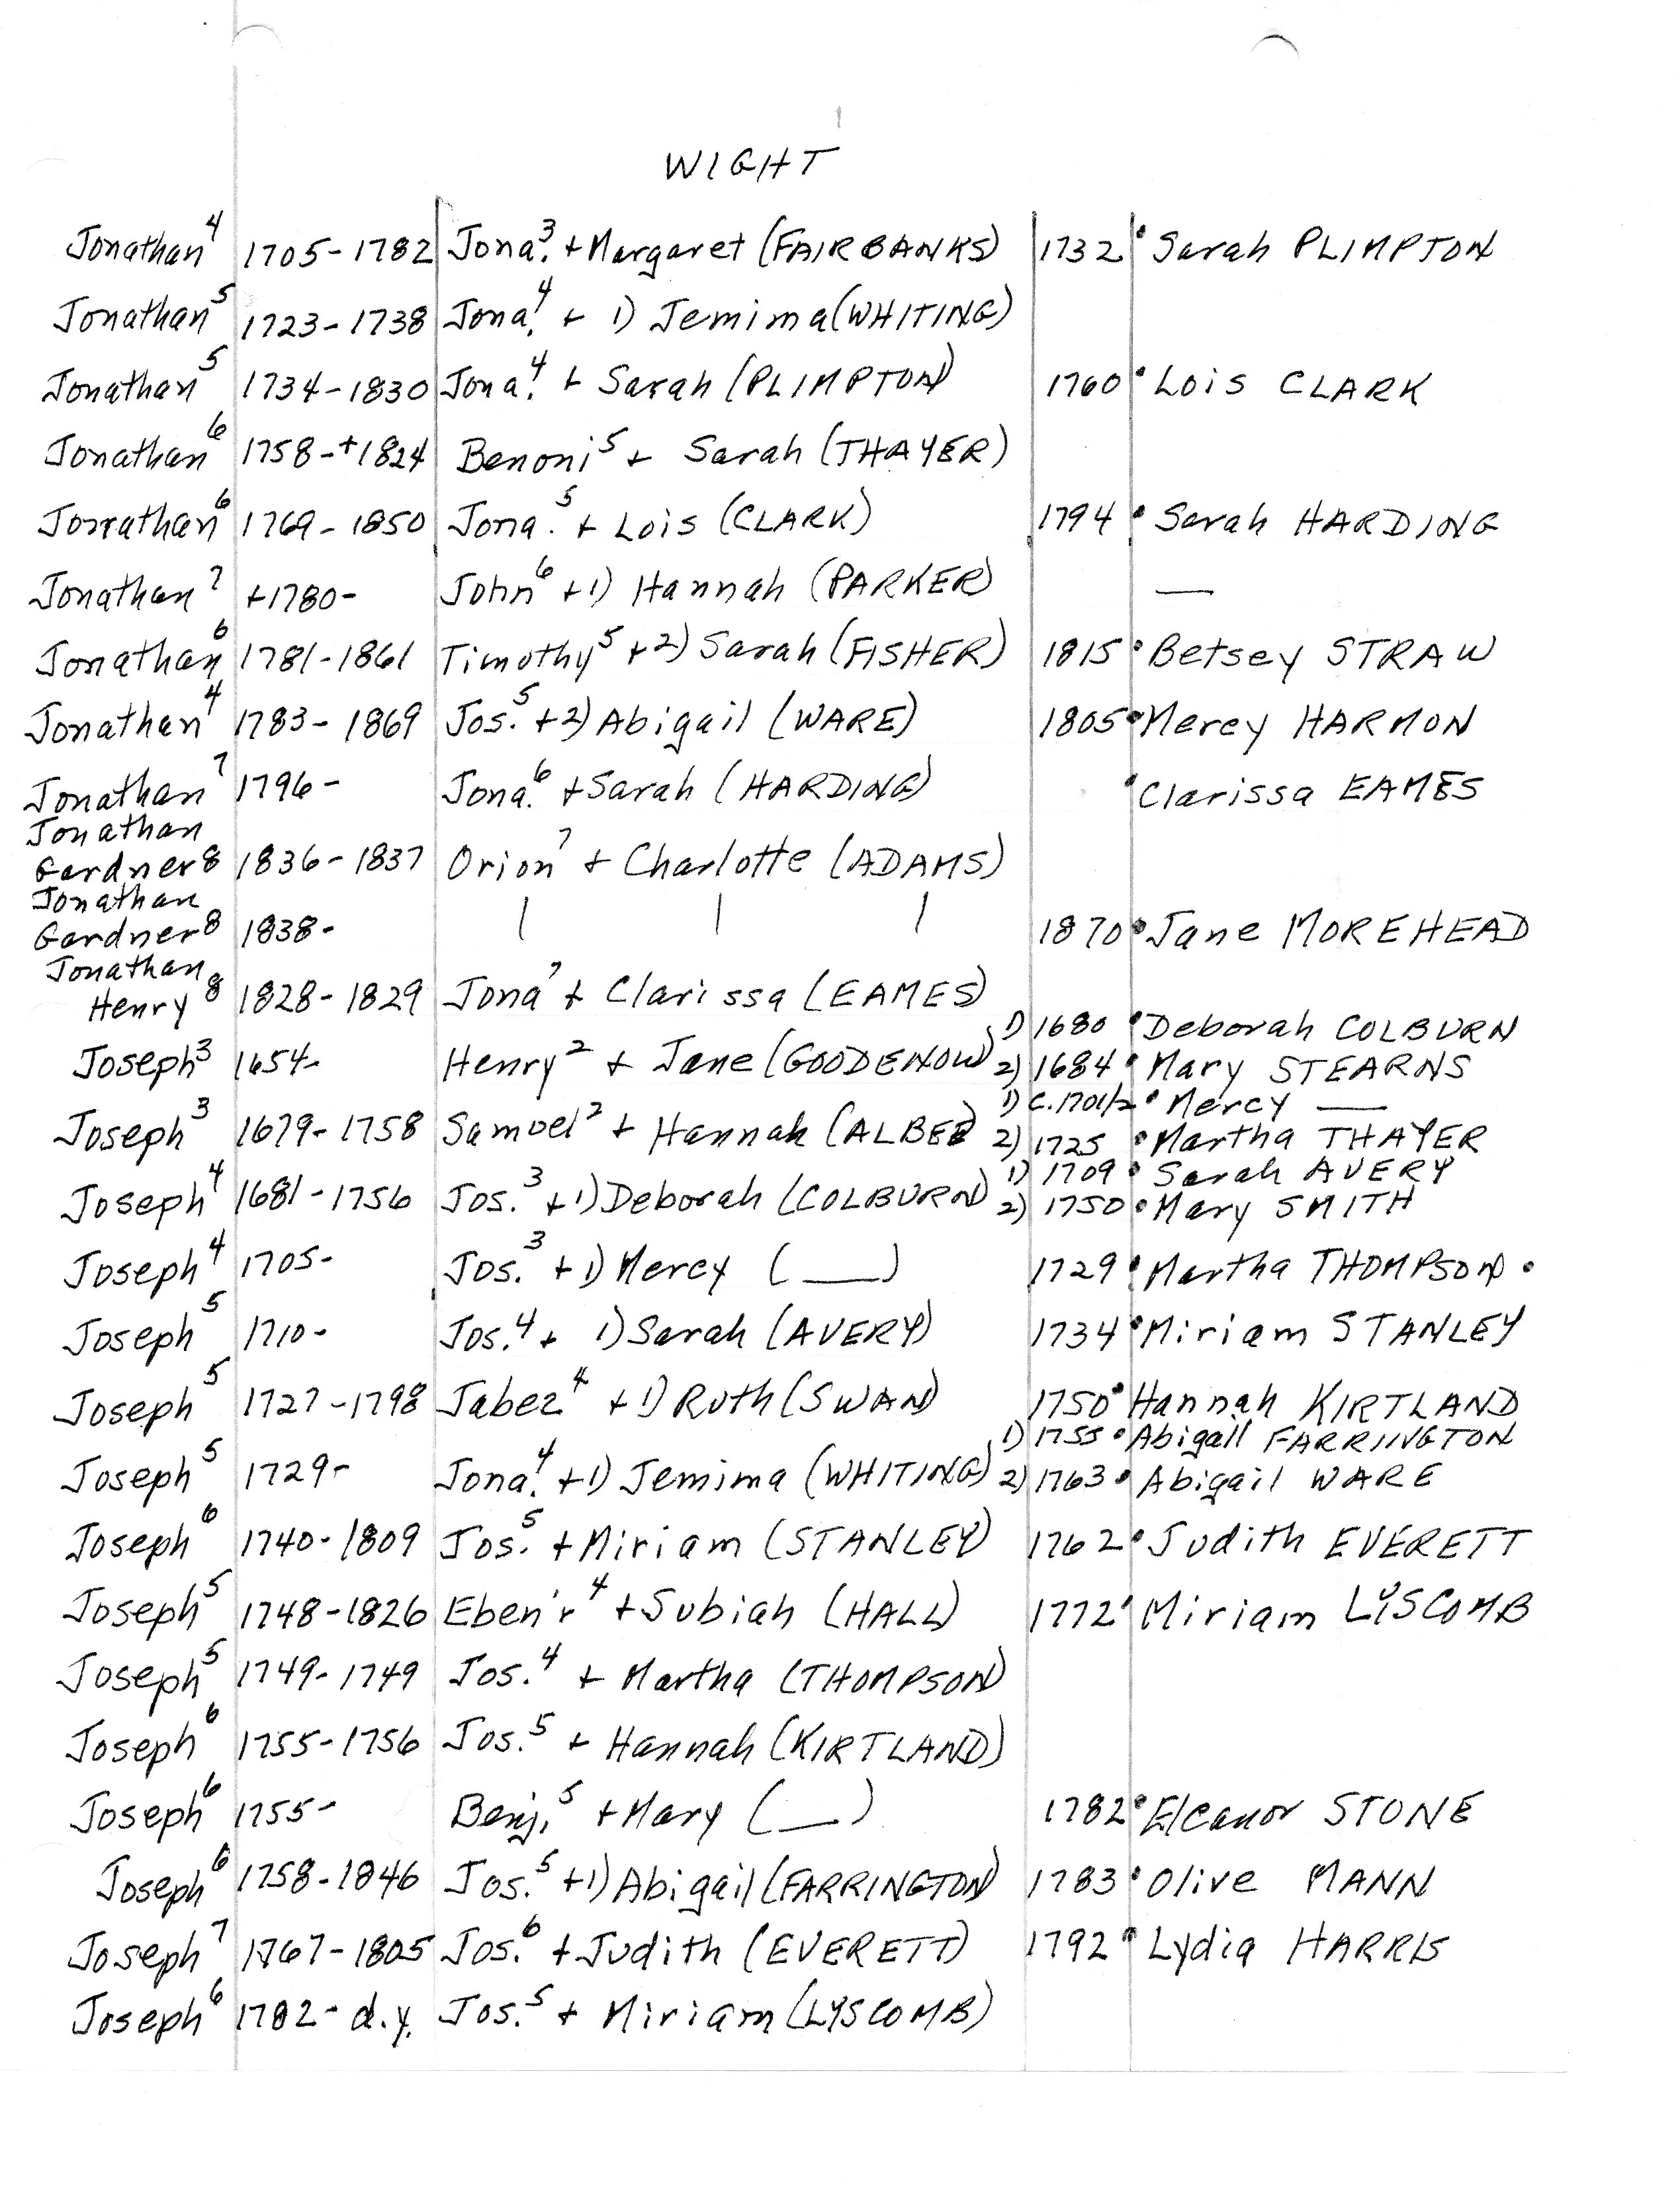 WIGHT
Jonathan⁴ 1705-1782 Jona.³ + Margaret (FAIRBANKS) 1732 • Sarah PLIMPTON
Jonathan⁵ 1723-1738 Jona.⁴ + 1) Jemima (WHITING)
Jonathan⁵ 1734-1830 Jona.⁴ + Sarah (PLIMPTON) 1760 • Lois CLARK
Jonathan⁶ 1758-+1824 Benoni⁵ + Sarah (THAYER)
Jonathan⁶ 1769-1850 Jona.⁵ + Lois (CLARK) 1794 • Sarah HARDING
Jonathan⁷ +1780- John⁶ +1) Hannah (PARKER) —
Jonathan⁶ 1781-1861 Timothy⁵ +2) Sarah (FISHER) 1815 • Betsey STRAW
Jonathan⁴ 1783-1869 Jos.⁵ +2) Abigail (WARE) 1805 • Mercy HARMON
Jonathan⁷ 1796- Jona.⁶ + Sarah (HARDING) • Clarissa EAMES
Jonathan
Gardner⁸ 1836-1837 Orion⁷ + Charlotte (ADAMS)
Jonathan
Gardner⁸ 1838- | | | 1870 • Jane MOREHEAD
Jonathan
Henry⁸ 1828-1829 Jona⁷ + Clarissa (EAMES)
1) 1680 • Deborah COLBURN
Joseph³ 1654- Henry² + Jane (GOODENOW) 2) 1684 • Mary STEARNS
1) c.1701/2 • Mercy —
Joseph³ 1679-1758 Samuel² + Hannah (ALBEE 2) 1725 • Martha THAYER
1) 1709 • Sarah AVERY
Joseph⁴ 1681-1756 Jos.³ +1) Deborah (COLBURN) 2) 1750 • Mary SMITH
Joseph⁴ 1705- Jos.³ +1) Mercy (___) 1729 • Martha THOMPSON •
Joseph⁵ 1710- Jos.⁴ + 1) Sarah (AVERY) 1734 • Miriam STANLEY
Joseph⁵ 1727-1798 Jabez⁴ +1) Ruth (SWAN) 1750 • Hannah KIRTLAND
1) 1755 • Abigail FARRIINGTON
Joseph⁵ 1729- Jona.⁴ +1) Jemima (WHITING) 2) 1763 • Abigail WARE
Joseph⁶ 1740-1809 Jos.⁵ + Miriam (STANLEY) 1762 • Judith EVERETT
Joseph⁵ 1748-1826 Eben'r⁴ + Subiah (HALL) 1772 • Miriam LISCOMB
Joseph⁵ 1749-1749 Jos.⁴ + Martha (THOMPSON)
Joseph⁶ 1755-1756 Jos.⁵ + Hannah (KIRTLAND)
Joseph⁶ 1755- Benj.⁵ + Mary (__) 1782 • Eleanor STONE
Joseph⁶ 1758-1846 Jos.⁵ +1) Abigail (FARRINGTON) 1783 • Olive MANN
Joseph⁷ 1767-1805 Jos.⁶ + Judith (EVERETT) 1792 • Lydia HARRIS
Joseph⁶ 1782-d.y. Jos.⁵ + Miriam (LYSCOMB)